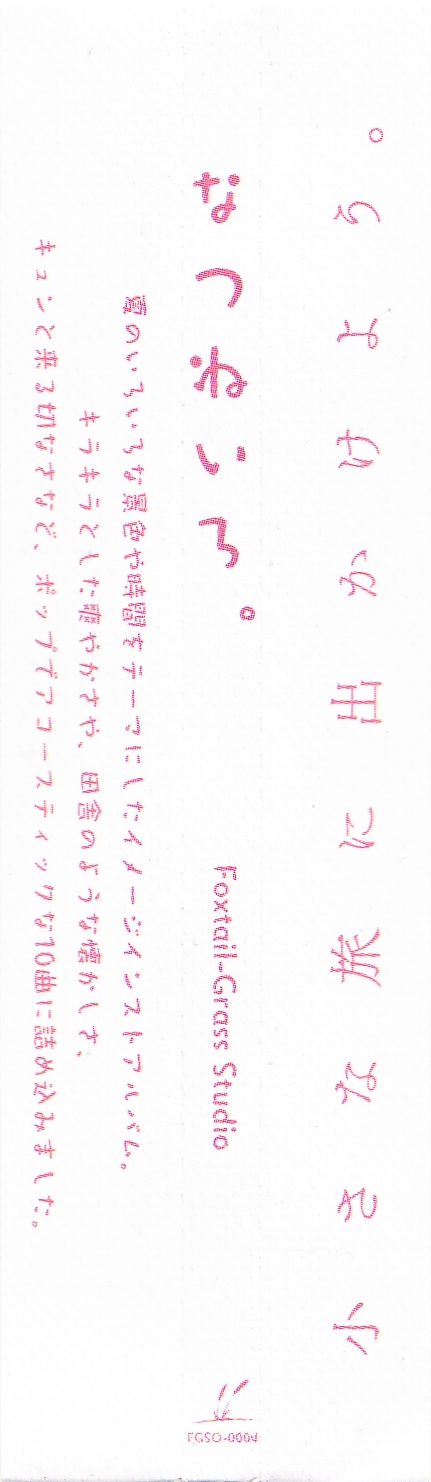 小さな旅に出かけよう。
なつねいろ。
Foxtail-Grass Studio
夏のいろいろな景色や時間をテーマにしたイメージインストアルバム。
キラキラとした爽やかさや、田舎のような懐かしさ、
キュンと来る切なさなど、ポップでアコースティックな10曲に詰め込みました。
FGSO-0004